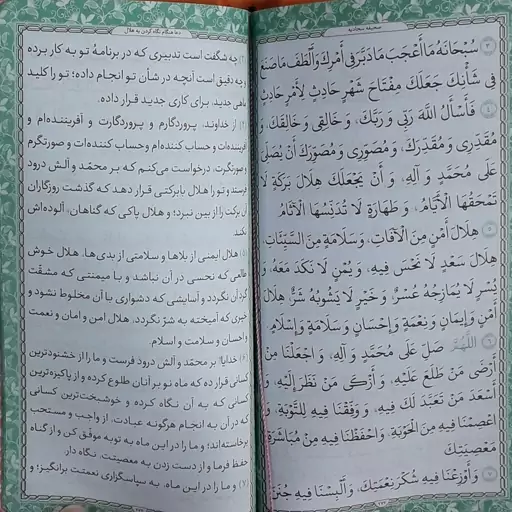 صحیفه سجادیه
﴿٣﴾ سُبْحَانَهُ مَا أَعْجَبَ مَا دَبَّرَ فِي أَمْرِكَ وَأَلْطَفَ مَا صَنَعَ
فِي شَأْنِكَ جَعَلَكَ مِفْتَاحَ شَهْرٍ حَادِثٍ لِأَمْرٍ حَادِثٍ
﴿٤﴾ فَأَسْأَلُ اللَّهَ رَبِّي وَ رَبَّكَ، وَ خَالِقِي وَ خَالِقَكَ، وَ
مُقَدِّرِي وَ مُقَدِّرَكَ، وَ مُصَوِّرِي وَ مُصَوِّرَكَ أَنْ يُصَلِّيَ
عَلَى مُحَمَّدٍ وَ آلِهِ، وَ أَنْ يَجْعَلَكَ هِلَالَ بَرَكَةٍ لَا
تَمْحَقُهَا الْأَيَّامُ، وَ طَهَارَةٍ لَا تُدَنِّسُهَا الْآثَامُ
﴿٥﴾ هِلَالَ أَمْنٍ مِنَ الْآفَاتِ، وَ سَلَامَةٍ مِنَ السَّيِّئَاتِ،
هِلَالَ سَعْدٍ لَا نَحْسَ فِيهِ، وَ يُمْنٍ لَا نَكَدَ مَعَهُ، وَ
يُسْرٍ لَا يُمَازِجُهُ عُسْرٌ، وَ خَيْرٍ لَا يَشُوبُهُ شَرٌّ، هِلَالَ
أَمْنٍ وَ إِيمَانٍ وَ نِعْمَةٍ وَ إِحْسَانٍ وَ سَلَامَةٍ وَ إِسْلَامٍ.
﴿٦﴾ اللَّهُمَّ صَلِّ عَلَى مُحَمَّدٍ وَ آلِهِ، وَ اجْعَلْنَا مِنْ
أَرْضَى مَنْ طَلَعَ عَلَيْهِ، وَ أَزْكَى مَنْ نَظَرَ إِلَيْهِ، وَ
أَسْعَدَ مَنْ تَعَبَّدَ لَكَ فِيهِ، وَ وَفِّقْنَا فِيهِ لِلتَّوْبَةِ، وَ
اعْصِمْنَا فِيهِ مِنَ الْحَوْبَةِ، وَ احْفَظْنَا فِيهِ مِنْ مُبَاشَرَةِ
مَعْصِيَتِكَ
﴿٧﴾ وَ أَوْزِعْنَا فِيهِ شُكْرَ نِعْمَتِكَ، وَ أَلْبِسْنَا فِيهِ جُنَنَ
دعا هنگام نگاه کردن به هلال
(۳) چه شگفت است تدبیری که در برنامهٔ تو به کار برده
و چه دقیق است آنچه در شأن تو انجام داده؛ تو را کلید
ماهی جدید، برای کاری جدید قرار داده.
(۴) از خداوند، پروردگارم و پروردگارت و آفریننده‌ام و
آفریننده‌ات و حساب کننده‌ام و حساب کننده‌ات و صورتگرم
و صورتگرت، درخواست می‌کنم که بر محمّد و آلش درود
فرستد و تو را هلال بابرکتی قرار دهد که گذشت روزگاران
آن برکت را از بین نبرد؛ و هلال پاکی که گناهان، آلوده‌اش
نکند.
(۵) هلال ایمنی از بلاها و سلامتی از بدی‌ها، هلال خوش
طالعی که نحسی در آن نباشد و با میمنتی که مشقّت
گرد آن نگردد و آسایشی که دشواری با آن مخلوط نشود و
خیری که آمیخته به شرّ نگردد. هلال امن و امان و نعمت
و احسان و سلامت و اسلام.
(۶) خدایا! بر محمّد و آلش درود فرست و ما را از خشنودترین
کسانی قرار ده که ماه نو بر آنان طلوع کرده و از پاکیزه‌ترین
کسانی که به آن نگاه کرده و خوشبخت‌ترین کسانی
که در آن به انجام هرگونه عبادت، از واجب و مستحب
برخاسته‌اند؛ و ما را در این ماه به توبه موفّق کن و از گناه
حفظ فرما و از دست زدن به معصیتت، نگاه دار.
(۷) و ما را در این ماه، به سپاسگزاری نعمتت برانگیز؛ و